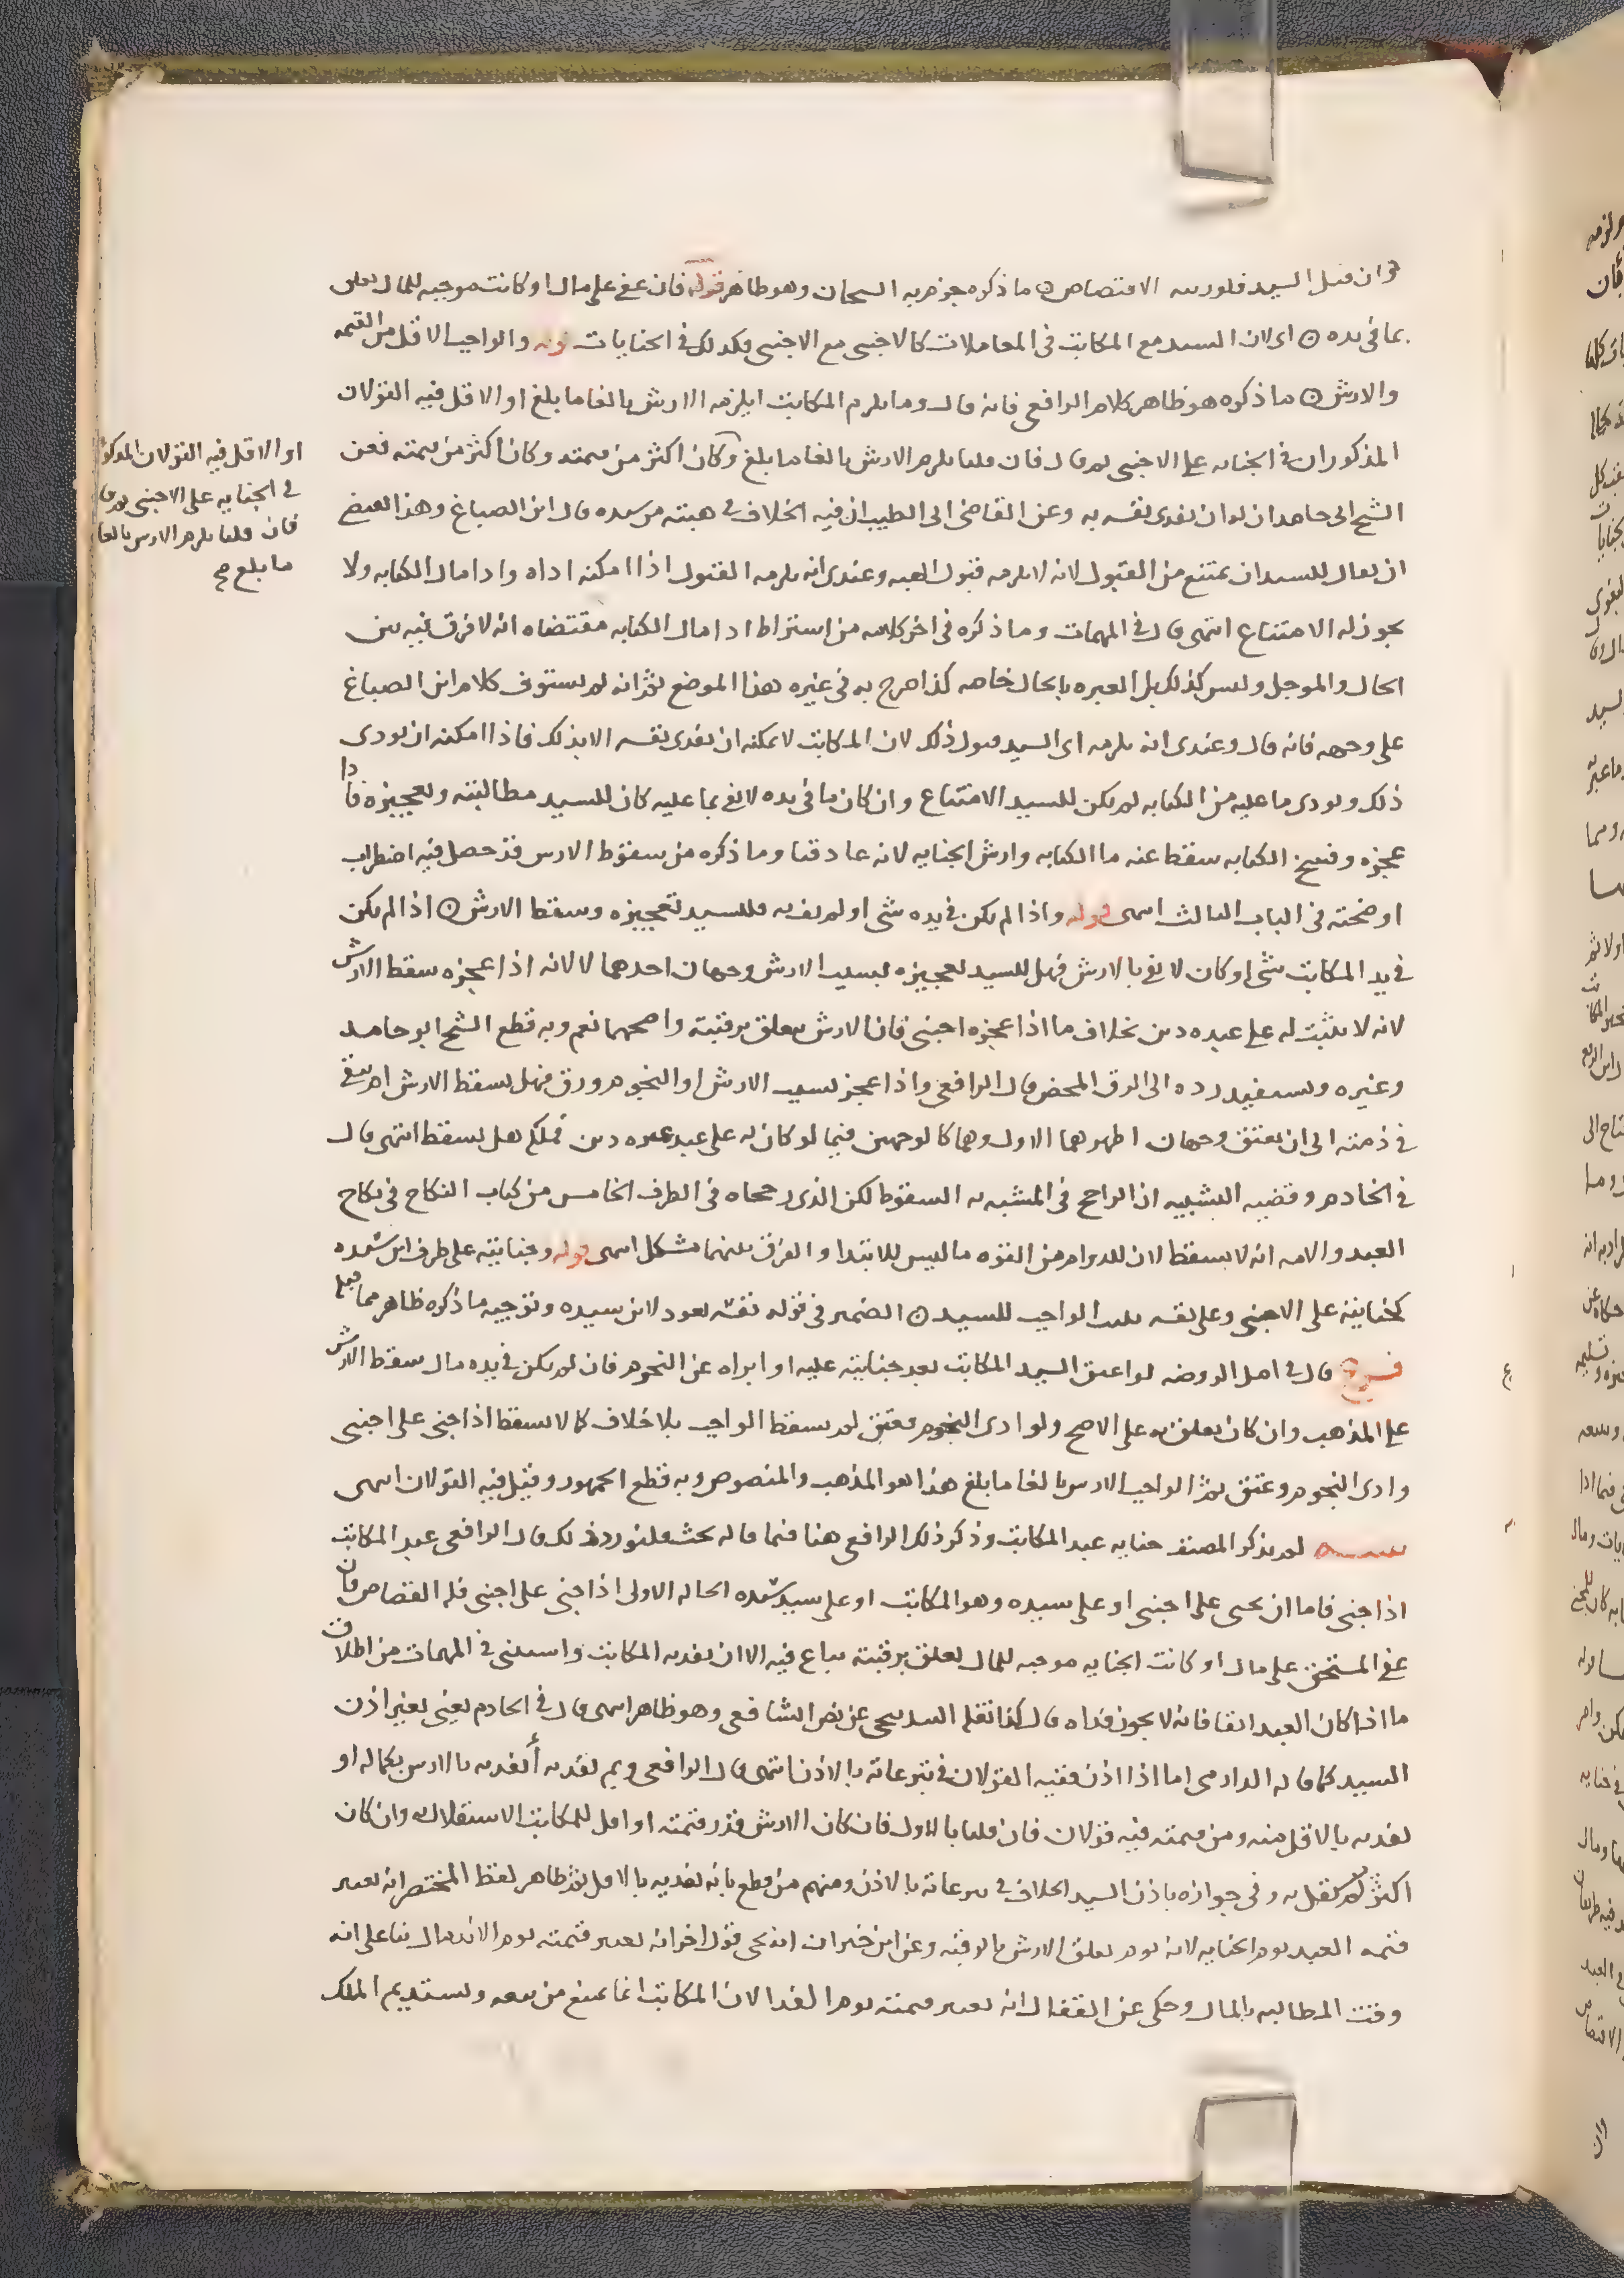 وان قتل السيد فلورثته الاقتصاص ۞ ما ذكره جزم به الشيخان وهو ظاهر قوله فان عفى على مال او كانت موجبه للمال تعلق
بما فى يده ۞ اى لان السيد مع المكاتب فى المعاملات كالاجنبى مع الاجنبى فكذلك فى الجنايات قوله والواجب الاقل من القيمه
والارش ۞ ما ذكره هو ظاهر كلام الرافعى فانه قال وما يلزم المكاتب ايلزمه الارش بالغا ما بلغ او الاقل فيه القولان
المذكوران فى الجنايه على الاجنبى ثم قال فان قلنا يلزم الارش بالغا ما بلغ وكان اكثر من قيمته وكان اكثر من قيمته فعن
الشيخ ابى حامد ان له ان يفدى نفسه به وعن القاضى ابى الطيب ان فيه الخلاف فى هبته من سيده قال ابن الصباغ وهذا يقتضى
ان يقال للسيد ان يمتنع من القبول لانه لا يلزمه قبول الهبه وعندى انه يلزمه القبول اذا امكنه اداه وادا مال الكتابه ولا
يجوز له الامتناع انتهى قال فى المهمات وما ذكره فى اخر كلامه من اشتراط ادا مال الكتابه مقتضاه انه لا فرق فيه بين
الحال والموجل وليس كذلك بل العبره بالحال خاصه كذا صرح به فى غيره هذا الموضع ثم انه لم يستوف كلام ابن الصباغ
على وجهه فانه قال وعندى انه يلزمه اى السيد قبول ذلك لان المكاتب لا يمكنه ان يفدى نفسه الا بذلك فاذا امكنه ان يودى
ذلك ويودى ما عليه من الكتابه لم يكن للسيد الامتناع وان كان ما فى يده لا يفى بما عليه كان للسيد مطالبته وتعجيزه فاذا
عجزه وفسخ الكتابه سقط عنه ما الكتابه وارش الجنايه لانه عاد قنا وما ذكره من سقوط الارش قد حصل فيه اضطراب
اوضحته فى الباب الثالث انتهى قوله واذا لم يكن فى يده شى او لم يف به فللسيد تعجيزه وسقط الارش ۞ اذا لم يكن
فى يد المكاتب شى او كان لا يفى بالارش فهل للسيد تعجيزه بسبب الارش وجهان احدهما لا لانه اذا عجزه سقط الارش
لانه لا يثبت له على عبده دين بخلاف ما اذا عجزه اجنبى فان الارش يتعلق برقبته واصحهما نعم وبه قطع الشيخ ابو حامد
وغيره ويستفيد رده الى الرق المحض قال الرافعى واذا عجز بسبب الارش او النجوم ورق فهل يسقط الارش ام يبقى
فى ذمته الى ان يعتق وجهان اظهرهما الاول وهما كالوجهين فيما لو كان له على عبد غيره دين فملكه هل يسقط انتهى قال
فى الخادم وقضيه التشبيه اذ الراجح فى المشبه به السقوط لكن الذى رجحاه فى الطرف الخامس من كتاب النكاح فى نكاح
العبد والامه انه لا يسقط لان للدوام من القوه ما ليس للابتدا والفرق بينهما مشكل انتهى قوله وجنايته على طرف ابن سيده
كجنايته على الاجنبى وعلى نفسه يثبت الواجب للسيد ۞ الضمير فى قوله نفسه يعود لابن سيده وتوجيه ما ذكره ظاهر مما قبله
فرع قال فى اصل الروضه لو اعتق السيد المكاتب بعد جنايته عليه او ابراه عن النجوم فان لم يكن فى يده مال سقط الارش
على المذهب وان كان تعلق به على الاصح ولو ادى النجوم فعتق لم يسقط الواجب بلا خلاف كما لا يسقط اذا جنى على اجنبى
وادى النجوم وعتق ثم الواجب الارش بالغا ما بلغ هذا هو المذهب والمنصوص وبه قطع الجمهور وقيل فيه القولان انتهى
تنبيه لم يذكر المصنف جنايه عبد المكاتب وذكر ذلك الرافعى هنا فيما قاله بحث فلنورد ذلك قال الرافعى عبد المكاتب
اذا جنى فاما ان يجنى على اجنبى او على سيده وهو المكاتب او على سيد سيده الحاله الاولى اذا جنى على اجنبى فله القصاص فان
عفى المستحق على مال او كانت الجنايه موجبه للمال تعلق برقبته يباع فيه الا ان يفديه المكاتب واستثنى فى المهمات من اطلاق
ما اذا كان العبد ابقا فانه لا يجوز فداه قال كذا نقله البندنيجى عن نص الشافعى وهو ظاهر انتهى قال فى الخادم يعنى بغير اذن
السيد كما قاله الدارمى اما اذا اذن ففيه القولان فى تبرعاته بالاذن انتهى قال الرافعى وبم يفديه أيفديه بالارش بكماله او
يفديه بالاقل منه ومن قيمته فيه قولان فان قلنا بالاول فان كان الارش قدر قيمته او اقل للمكاتب الاستقلال به وان كان
اكثر لم يستقل به وفى جوازه باذن السيد الخلاف فى تبرعاته بالاذن ومنهم من قطع بانه يفديه بالاقل ثم ظاهر لفظ المختصر انه يعتبر
قيمه العبد يوم الجنايه لانه يوم تعلق الارش بالرقبه وعن ابن خيران انه يجى قول اخر انه يعتبر قيمته يوم الاندمال بنا على انه
وقت المطالبه بالمال وحكى عن القفال انه يعتبر قيمته يوم الفدا لان المكاتب انما يمنع من بيعه ويستديم الملك
او الاقل فيه القولان المذكوران
فى الجنايه على الاجنبى ثم قال
فان قلنا يلزم الارش بالغا
ما بلغ صح